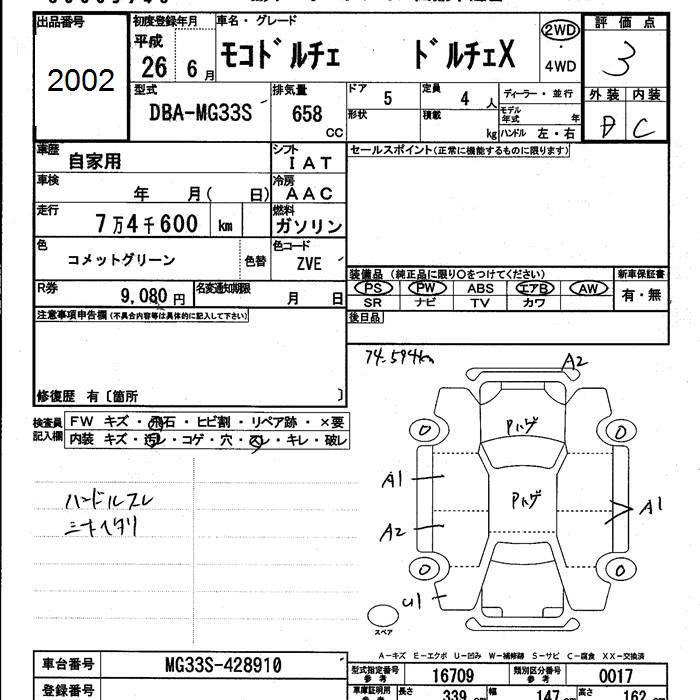 出品番号 初度登録年月 車名・グレード 2WD 評価点
2002 平成 26 6月 モコドルチェ ドルチェX ・ 4WD 3
型式 排気量 ドア 定員 ディーラー・並行 外装 内装
DBA-MG33S 658 CC 5 4人 モデル年式 年 D C
形状 積載 kg ハンドル 左・右
車歴 自家用 シフト IAT セールスポイント(正常に機能するものに限ります)
車検 年 月( 日) 冷房 AAC
走行 7万4千600 km 燃料 ガソリン
色 コメットグリーン 色替 色コード ZVE
装備品 (純正品に限り○をつけてください) 新車保証書
PS PW ABS エアB AW 有・無
SR ナビ TV カワ
R券 9,080円 名変通知期限 月 日
後日品
注意事項申告欄(不具合内容等は具体的に記入して下さい)
74.594km
修復歴 有〔箇所 〕
検査員記入欄 FW キズ・飛石・ヒビ割・リペア跡・×要
内装 キズ・汚レ・コゲ・穴・スレ・キレ・破レ
ハンドルスレ
シートヘタリ
A2
Pハゲ
0 0
A1
Pハゲ
A1
A2
0 0
U1
スペア
A-キズ E-エクボ U-凹み W-補修跡 S-サビ C-腐食 XX-交換済
車台番号 MG33S-428910 型式指定番号 参考 16709 類別区分番号 参考 0017
登録番号 車庫証明用 参考 長さ 339 cm 幅 147 cm 高さ 162 cm